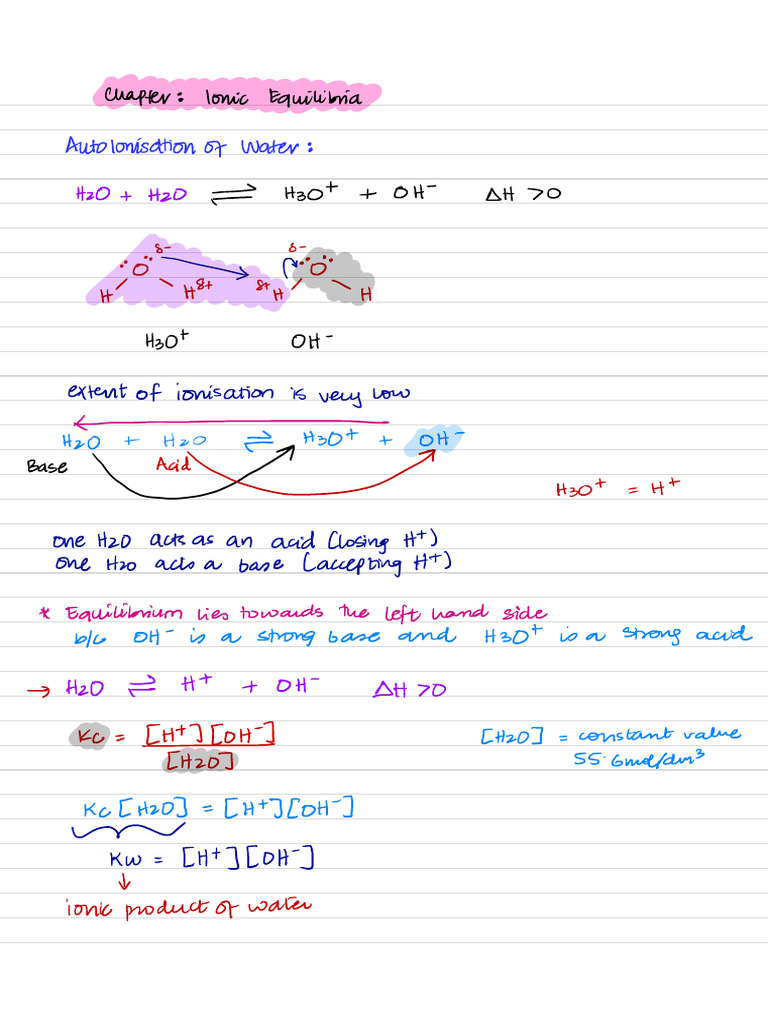 Chapter: Ionic Equilibria
Autoionisation of Water:
H2O + H2O ⇌ H3O⁺ + OH⁻ ΔH >0
δ- δ-
O O
H H δ+ δ+ H H
H3O⁺ OH⁻
extent of ionisation is very low
H2O + H2O ⇌ H3O⁺ + OH⁻
Base Acid
H3O⁺ = H⁺
one H2O acts as an acid (losing H⁺)
one H2O acts a base (accepting H⁺)
* Equilibrium lies towards the left hand side
b/c OH⁻ is a strong base and H3O⁺ is a strong acid
→ H2O ⇌ H⁺ + OH⁻ ΔH >0
Kc = [H⁺][OH⁻] / [H2O]
[H2O] = constant value
55.6mol/dm³
Kc [H2O] = [H⁺][OH⁻]
Kw = [H⁺][OH⁻]
↓
ionic product of water